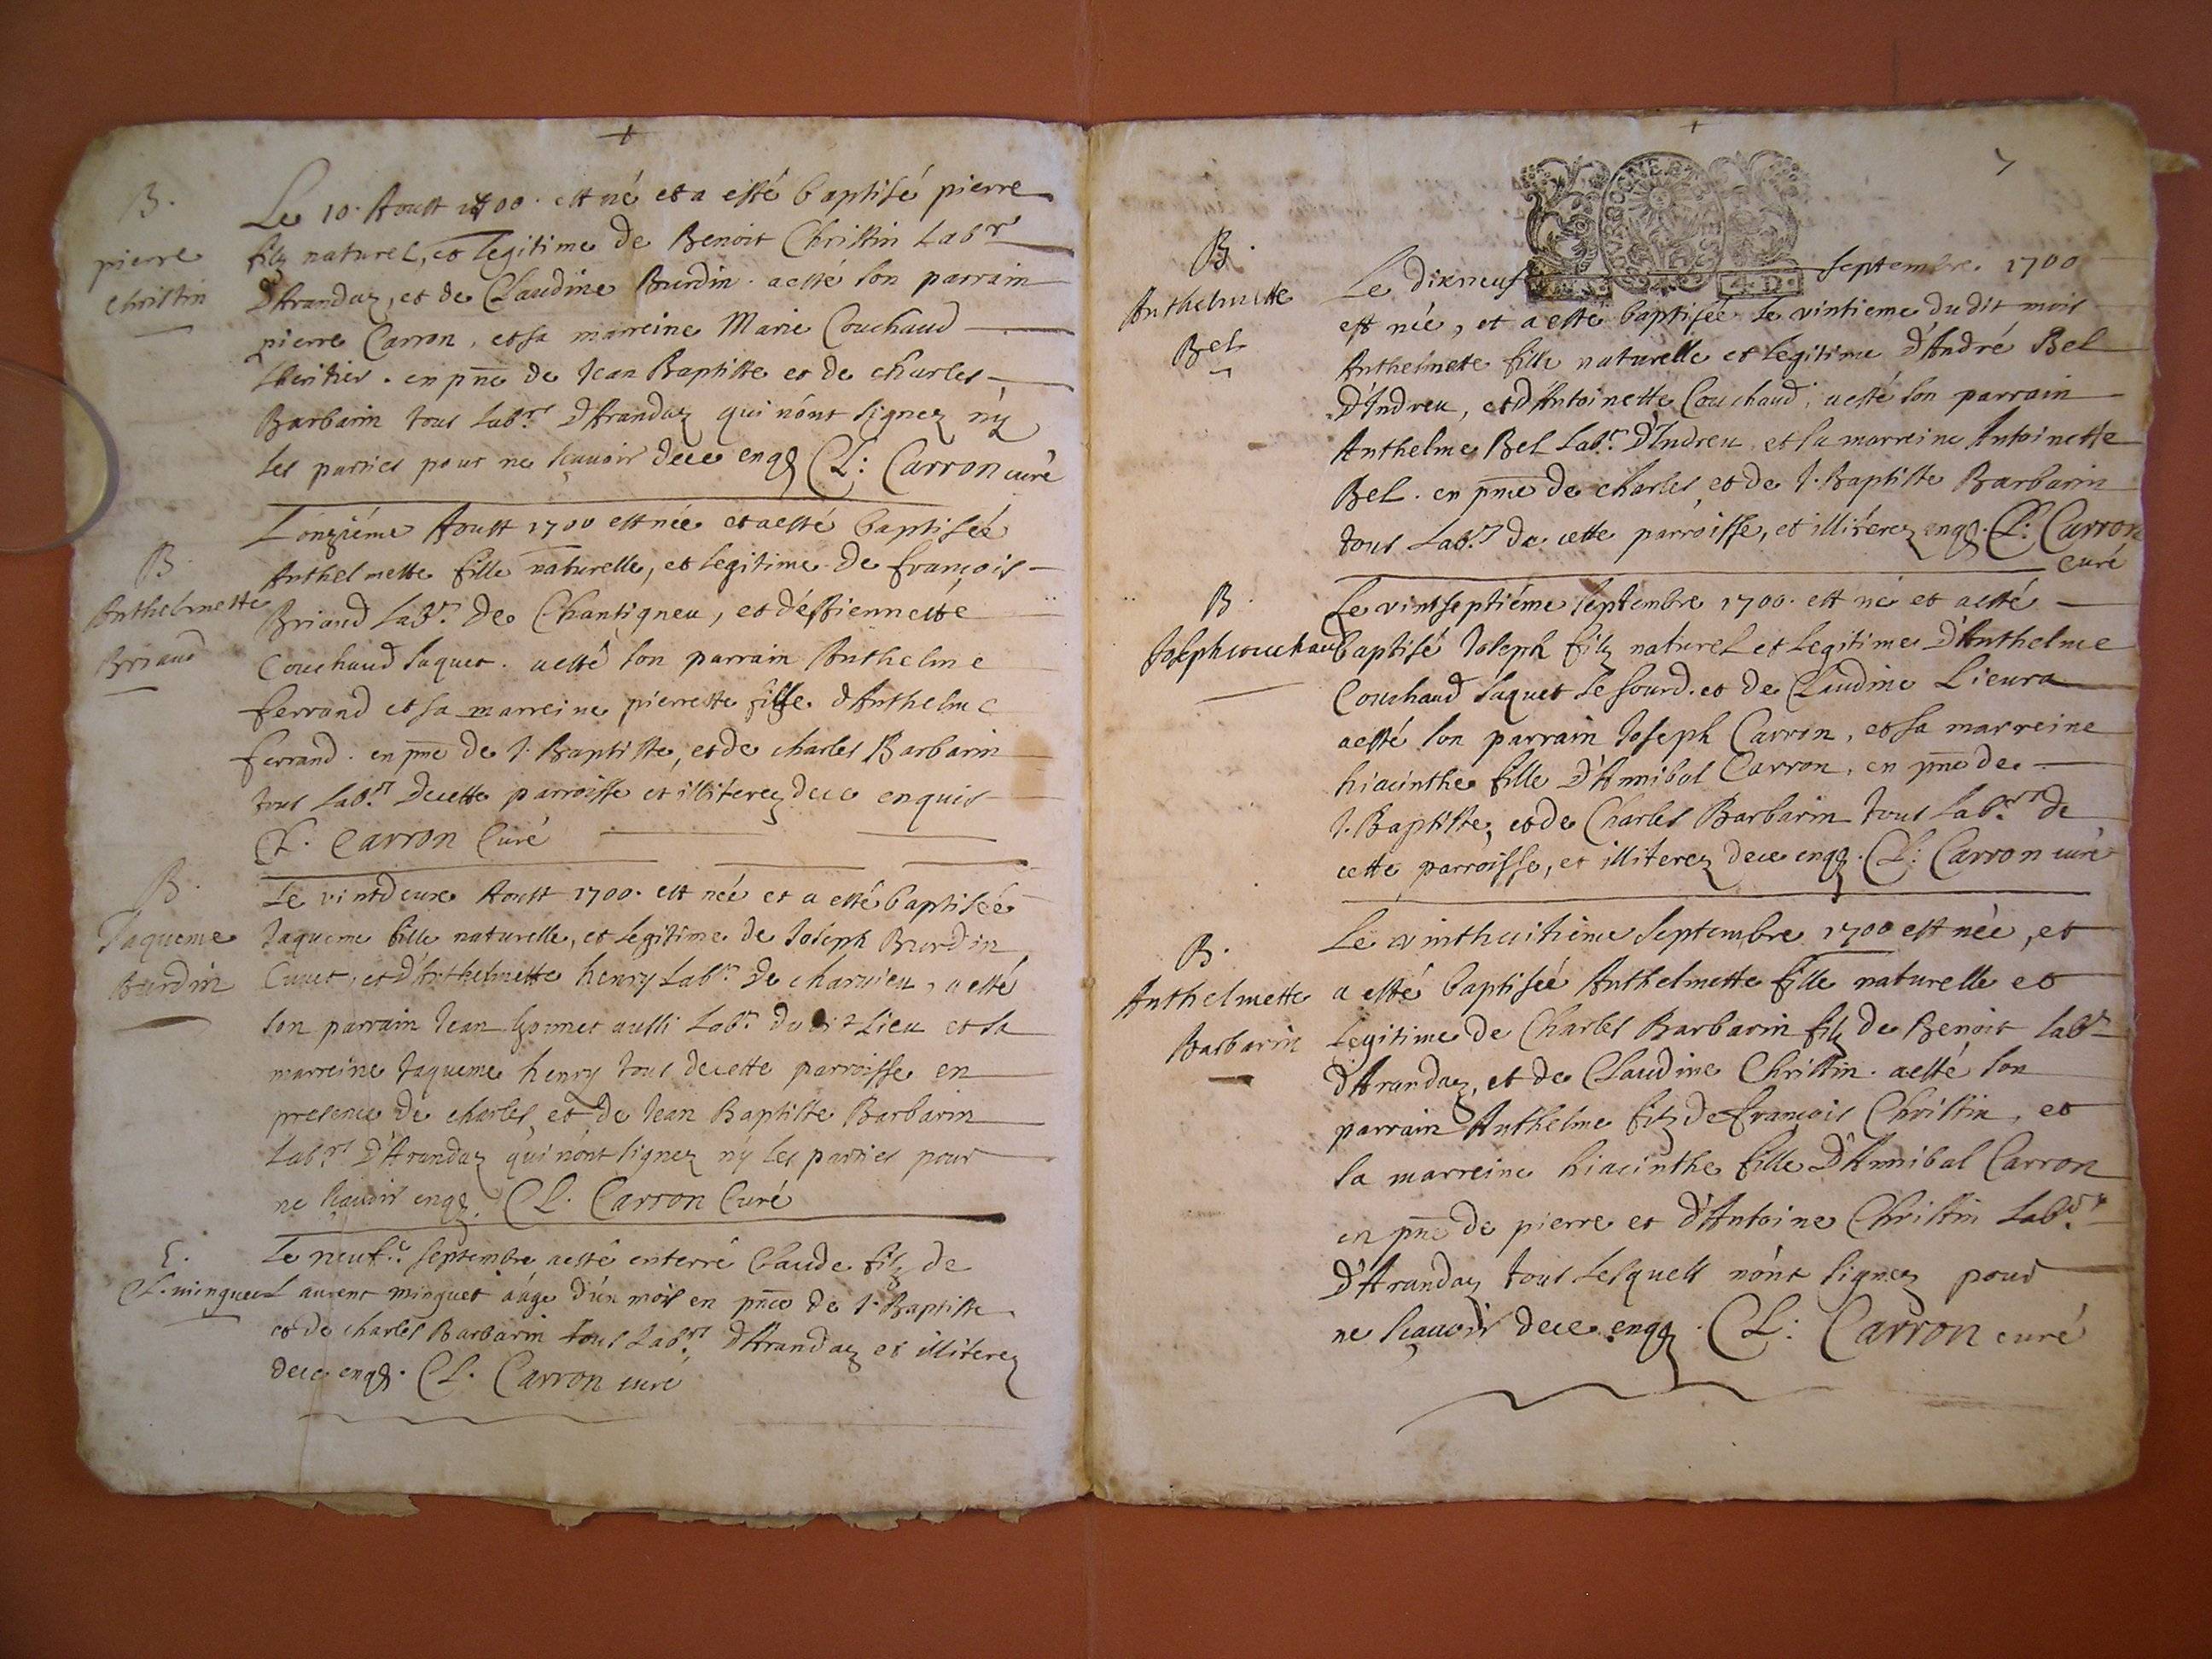 B.
pierre
christin
Le 10. Aoust 1700. est né et a esté baptisé pierre
filz naturel, et legitime de Benoit Christin Labr
D'Arandaz, et de Claudine Burdin. a esté son parrain
pierre Carron, et sa marreine Marie Couchaud
L'heritier. en pñce de Jean Baptiste et de charles
Barbarin tous Labrs D'Arandaz qui nónt signez n'y
les parties pour ne sçavoir dece enqs CL: Carron curé
B
Anthelmette
Briand
L'onziéme Aoust 1700 est née et a esté baptiseé
Anthelmette fille naturelle, et legitime de françois
Briand Labr. de Chantigneu, et d'éstiennette
Couchaud Jaquet. a esté son parrain Anthelme
ferrand et sa marreine pierrette fille d'Anthelme
ferrand. en pñce de J. Baptiste, et de charles Barbarin
tous Labrs decette parroisse et illiterez dece enquis
CL. Carron Curé
B.
Jaqueme
Burdin
Le vintdeuxe Aoust 1700. est née et a esté baptiseé
Jaqueme fille naturelle, et legitime de Joseph Burdin
Cuvet, et d'Anthelmette henry Labr. de charvieu, a esté
son parrain Jean gonnet aussi Labr. dudit Lieu et sa
marreine Jaqueme henry tous decette parroisse en
presence de charles, et de Jean Baptiste Barbarin
Labrs D'Arandaz qui nónt signez n'y les parties pour
ne sçavoir enqs. CL. Carron Curé
E.
CL. minguet
Le neufe. septembre a esté enterré Claude filz de
Laurent minguet aágé d'un mois en pñce de J. Baptiste
et de charles Barbarin tous Labrs D'Arandaz et illiterez
dece enqs. CL. Carron curé
7
B.
Anthelmette
Bel
Le dixneuf septembre 1700
est née, et a esté baptisée le vintieme dudit mois
Anthelmette fille naturelle et legitime D'André Bel
D'Indreu, et D'Antoinette Couchaud, a esté son parrain
Anthelme Bel Labr. D'Indreu et sa marreine Antoinette
Bel. en pñce de charles, et de J. Baptiste Barbarin
tous Labrs de cette parroisse, et illiterez enqs. CL: Carron
curé
B.
Joseph couchaud
Le vintseptiéme septembre 1700. est né et a esté
baptisé Joseph filz naturel et legitime D'Anthelme
Couchaud Jaquet le sourd. et de Claudine Lieura
a esté son parrain Joseph Carron, et sa marreine
hiacinthe fille D'Annibal Carron, en pñce de
J. Baptiste, et de Charles Barbarin tous Labrs de
cette parroisse, et illiterez dece enqs. CL: Carron curé
B.
Anthelmette
Barbarin
Le vinthuitieme septembre 1700 est née, et
a esté baptiseé Anthelmette fille naturelle et
legitime de Charles Barbarin filz de Benoit labr
d'Arandaz, et de Claudine Christin. a esté son
parrain Anthelme filz de françois Christin, et
sa marreine hiacinthe fille D'Annibal Carron
en pñce de pierre et d'Antoine Christin Labrs
D'Arandaz tous lesquels nónt signez pour
ne sçavoir dece enqs. CL: Carron curé